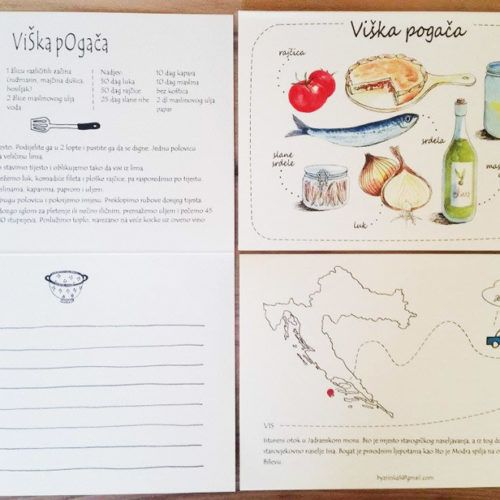 Viška pOgača
1 žlicu različitih začina
(ružmarin, majčina dušica,
bosiljak)
2 žlice maslinovog ulja
voda
Nadjev:
50 dag luka
50 dag rajčice
25 dag slane ribe
10 dag kapara
10 dag maslina
bez koštica
2 dl maslinovog ulja
papar
jesto. Podijelite ga u 2 lopte i pustite ga da se digne. Jednu polovicu
a veličinu lima.
o stavimo tijesto i oblikujemo tako da visi iz lima.
režimo luk, komadiće fileta i ploške rajčice, pa rasporedimo po tijestu.
slinama, kaparima, paprom i uljem.
drugu polovicu i pokrijemo smjesu. Preklopimo rubove donjeg tijesta.
iglom za pletenje ili nečim sličnim, premažemo uljem i pečemo 45
0 stupnjeva. Poslužimo toplo, narezano na veće kocke uz crveno vino
Viška pogača
rajčica
srdela
slane
srdele
luk
mas
VIS
otok u Jadranskom moru. Bio je mjesto starogrčkog naseljavanja, a iz tog do
starovjekovno naselje Issa. Bogat je prirodnim ljepotama kao što je Modra spilja na o
Biševu.